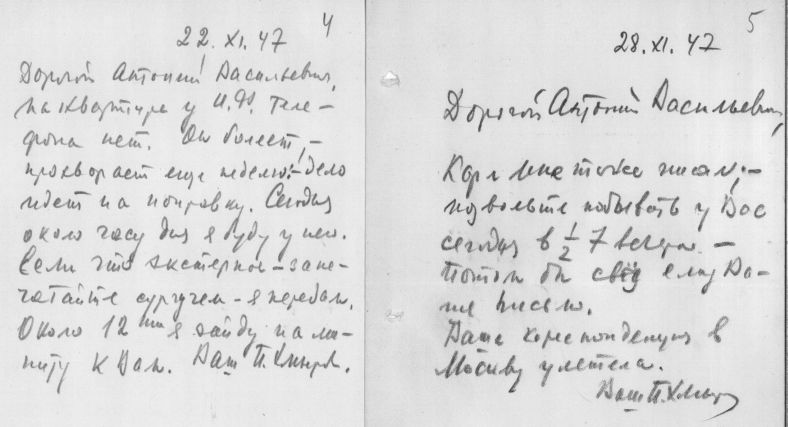 4
22. XI. 47
Дорогой Антоний Васильевич,
на квартире у И.Ф. теле-
фона нет. Он болеет, –
прохворает еще неделю: – дело
идет на поправку. Сегодня
около часу дня я буду у него.
Если что экстерное – запе-
чатайте сургучем – я передам.
Около 12 ти я зайду на ми-
нуту к Вам. Ваш П.
5
28. XI. 47
Дорогой Антоний Васильевич,
Карл мне тоже писал; –
позвольте побывать у Вас
сегодня в 1/2 7 вечера. –
Потом бы ему Ва-
ше письмо.
Ваша корреспонденция в
Москву улетела.
Ваш П.